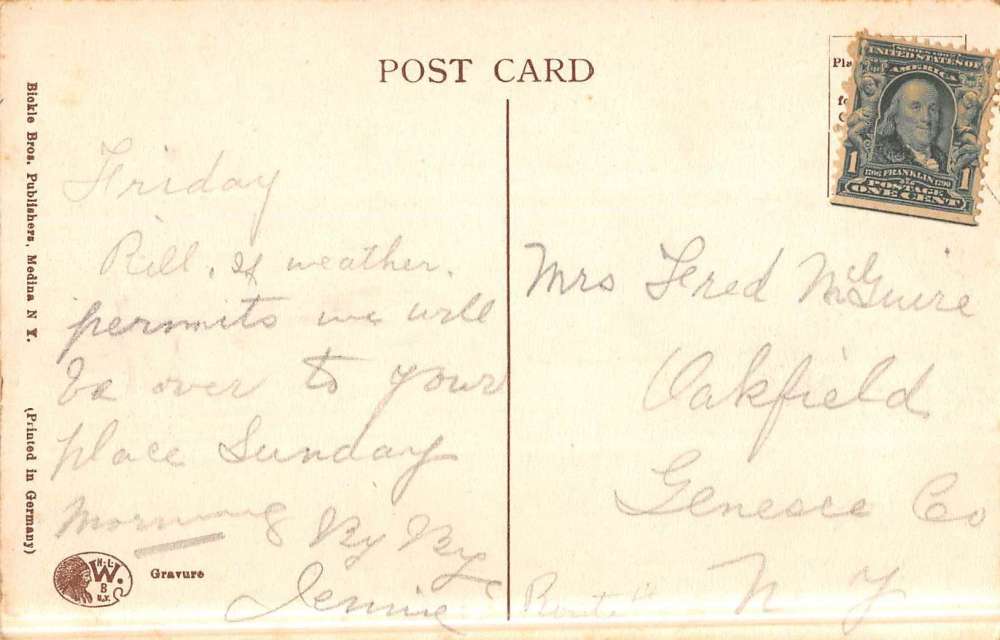 POST CARD
Bickle Bros. Publishers, Medina N Y.
(Printed in Germany)
Friday
Rill, If weather.
permits we will
be over to your
place Sunday
Morning By By
Jennie
H.L.
W.
B
N.Y.
Gravure
Pla
fo
SERIES 1902
UNITED STATES OF
AMERICA
1706 FRANKLIN 1790
POSTAGE
1 ONE CENT 1
Mrs Fred McGuire
Oakfield
Genesee Co
Route N Y